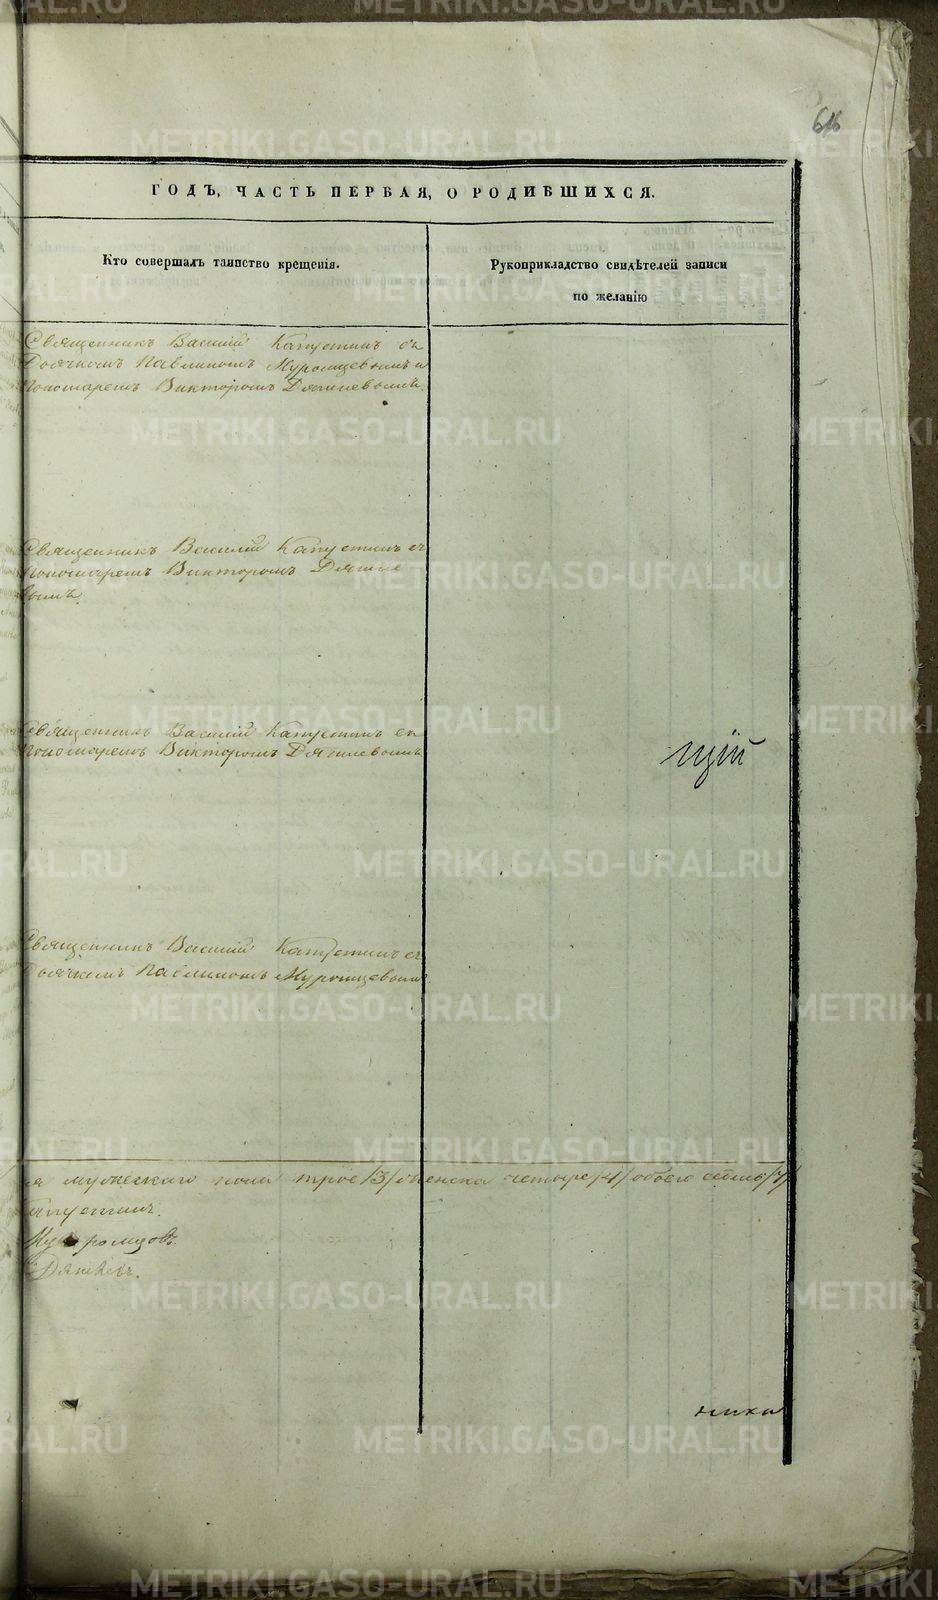 616
ГОДЪ, ЧАСТЬ ПЕРВАЯ, О РОДИВШИХСЯ.
Кто совершалъ таинство крещенія.
Рукоприкладство свидѣтелей записи
по желанію
Священникъ Василий Капустинъ съ
Дьячкомъ Павлиномъ Муромцевымъ и
Пономаремъ Викторомъ Дягилевымъ.
Священникъ Василий Капустинъ съ
Пономаремъ Викторомъ Дягиле
вымъ.
Священникъ Василий Капустинъ съ
Пономаремъ Викторомъ Дягилевымъ
щій
Священникъ Василий Капустинъ съ
Дьячкомъ Павлиномъ Муромцевымъ
мужескаго пола трое /3/ женска четыре /4/ обоего седмь /7/
Капустинъ.
Муромцовъ.
Дягилевъ.
ника
METRIKI.GASO-URAL.RU